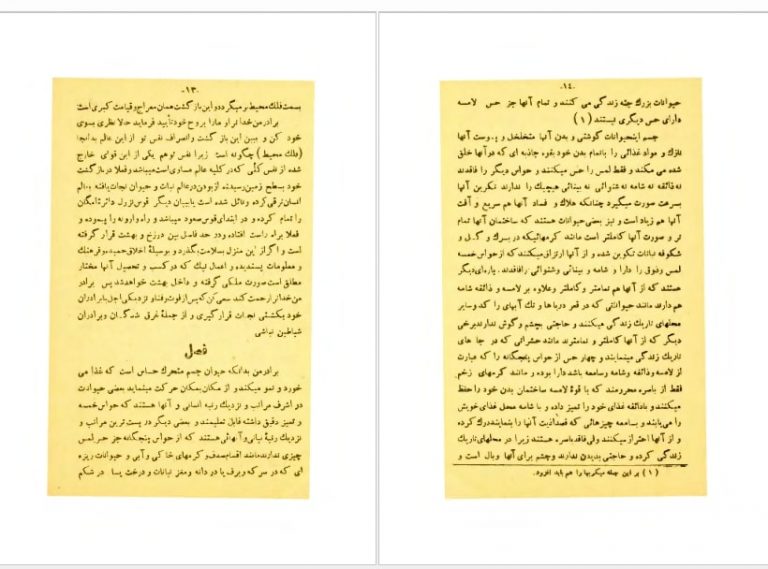 -۱۳۰-
بسمت فلك محیط بر میگردد و این بازگشت همان معراج و قیامت کبری است
برادر من خدا تو را و ما را بروح خود تأیید فرماید حالا نظری بسوی
خود کن و ببین این بازگشت و انصراف نفس تو از این عالم بدانجا
(فلك محیط) چگونه است زیرا نفس تو هم یکی از این قوای خارج
شده از نفس کلّی که در کلیه عالم مساری است میباشد و فعلا در بازگشت
خود بسطح زمین رسیده از بودن در عالم نبات و حیوان نجات یافته بعالم
انسان ترقی کرده و نائل شده است یا ببیان دیگر قوس نزول دائرة امکان
را تمام کرده و در ابتدای قوس صعود میباشد و راه وارونه را پیموده و
فعلا براه راست افتاده و در حد فاصل بین دوزخ و بهشت قرار گرفته
است و اگر از این منزل بسلامت بگذرد و بوسیلۀ اخلاق حمیده و فرهنگ
و معلومات پسندیده و اعمال نیك که در کسب و تحصیل آنها مختار
مطلق است صورت ملکی گرفته و داخل بهشت خواهد شد پس برادر
من خدا تو را رحمت کند سعی کن که پس از فوت و فنا و نزدیکی اجل با برادران
خود بکشتی نجات قرار گیری و از جملۀ غرق شدگان و برادران
شیاطین نباشی
فصل
برادر من بدانکه حیوان جسم متحرك حساس است که غذا می
خورد و نمو میکند و از مکان بمکان حرکت مینماید بعضی حیوانات
در اشرف مراتب و نزدیك رتبه انسانی و آنها هستند که حواس خمسه
و تمیز دقیق داشته قابل تعلیمند و بعضی دیگر در پست ترین مراتب و
نزدیك رتبۀ نباتی و آنهائی هستند که از حواس پنجگانه جز حس لمس
چیزی ندارند مانند اقسام صدف و کرمهای خاکی و آبی و حیوانات ریزه
ای که در سرکه و برف یا در دانه و مغز نباتات و درخت یا در شکم
-۱٤-
حیوانات بزرك جثه زندگی می کنند و تمام آنها جز حس لامسه
دارای حس دیگری نیستند (۱)
جسم اینحیوانات گوشتی و بدن آنها متخلخل و پوست آنها
نازك و مواد غذائی را باتمام بدن خود بقوه جاذبه ای که در آنها خلق
شده می مکند و فقط لمس را حس میکنند و حواس دیگر را فاقدند
نه ذائقه نه شامه نه شنوائی نه بینائی هیچیك را ندارند تکوین آنها
بسرعت صورت میگیرد چنانکه هلاك و فساد آنها هم سریع و آفت
آنها هم زیاد است و نیز بعضی حیوانات هستند که ساختمان آنها تمام
تر و صورت آنها کاملتر است مانند کرمهائیکه در برك و گل و
شکوفه نباتات تکوین شده و از آنها ارتزاق میکنند که از حواس خمسه
لمس و ذوق را دارا و شامه و بینائی و شنوائی را فاقدند. پاره ای دیگر
هستند که از آنها هم تمامتر و کاملتر و علاوه بر لامسه و ذائقه شامه
هم دارند مانند حیواناتی که در قعر دریاها و تك آبهای را کد و سایر
محلهای تاریك زندگی میکنند و حاجتی بچشم و گوش ندارند برخی
دیگر که از آنها کاملتر و تمامترند مانند حشراتی که در جا های
تاریك زندگی مینمایند و چهار حس از حواس پنجگانه را که عبارت
از لامسه و ذائقه و شامه و سامعه باشد دارا بوده و مانند کرمهای زخم
فقط از باصره محرومند که با قوۀ لامسه ساختمان بدن خود را حفظ
میکنند و باذائقه غذای خود را تمیز داده و با شامه محل غذای خویش
را می یابند و بسامعه چیزهائی که قصد اذیت آنها را بنمایند درك کرده
و از آنها احتراز میکنند ولی فاقد باصره هستند زیرا در محلهای تاریك
زندگی کرده و حاجتی بدیدن ندارند و چشم برای آنها وبال است و
(۱) بر این جمله میکربها را هم باید افزود.